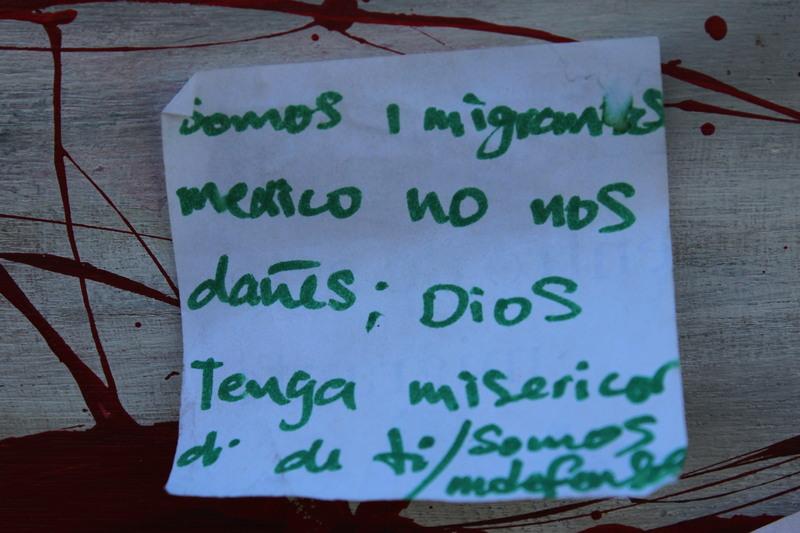 somos i migrantes
mexico no nos
dañes; Dios
Tenga misericor
di de ti/somos
indefenso